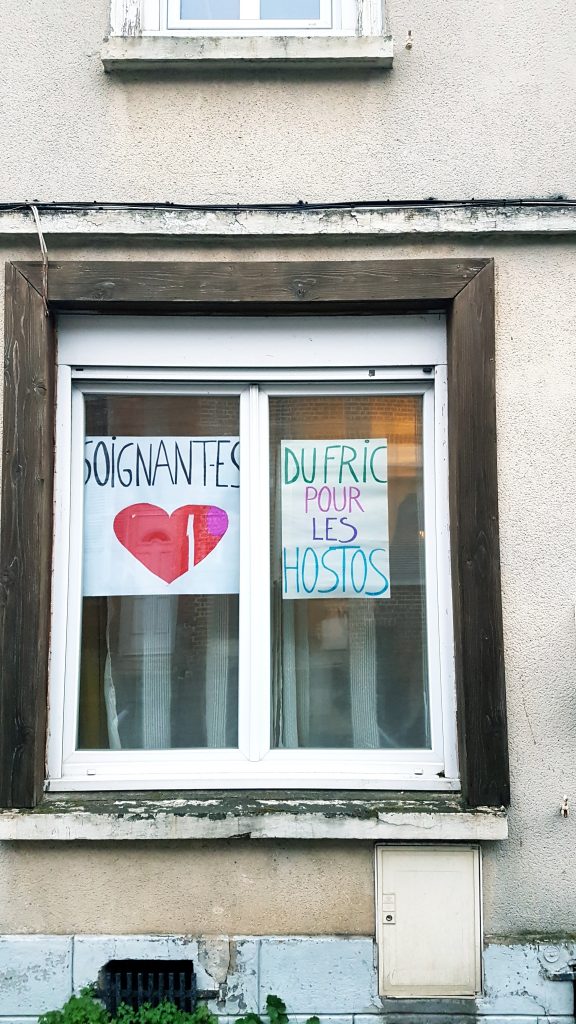 SOIGNANT-ES
DU FRIC
POUR
LES
HOSTOS